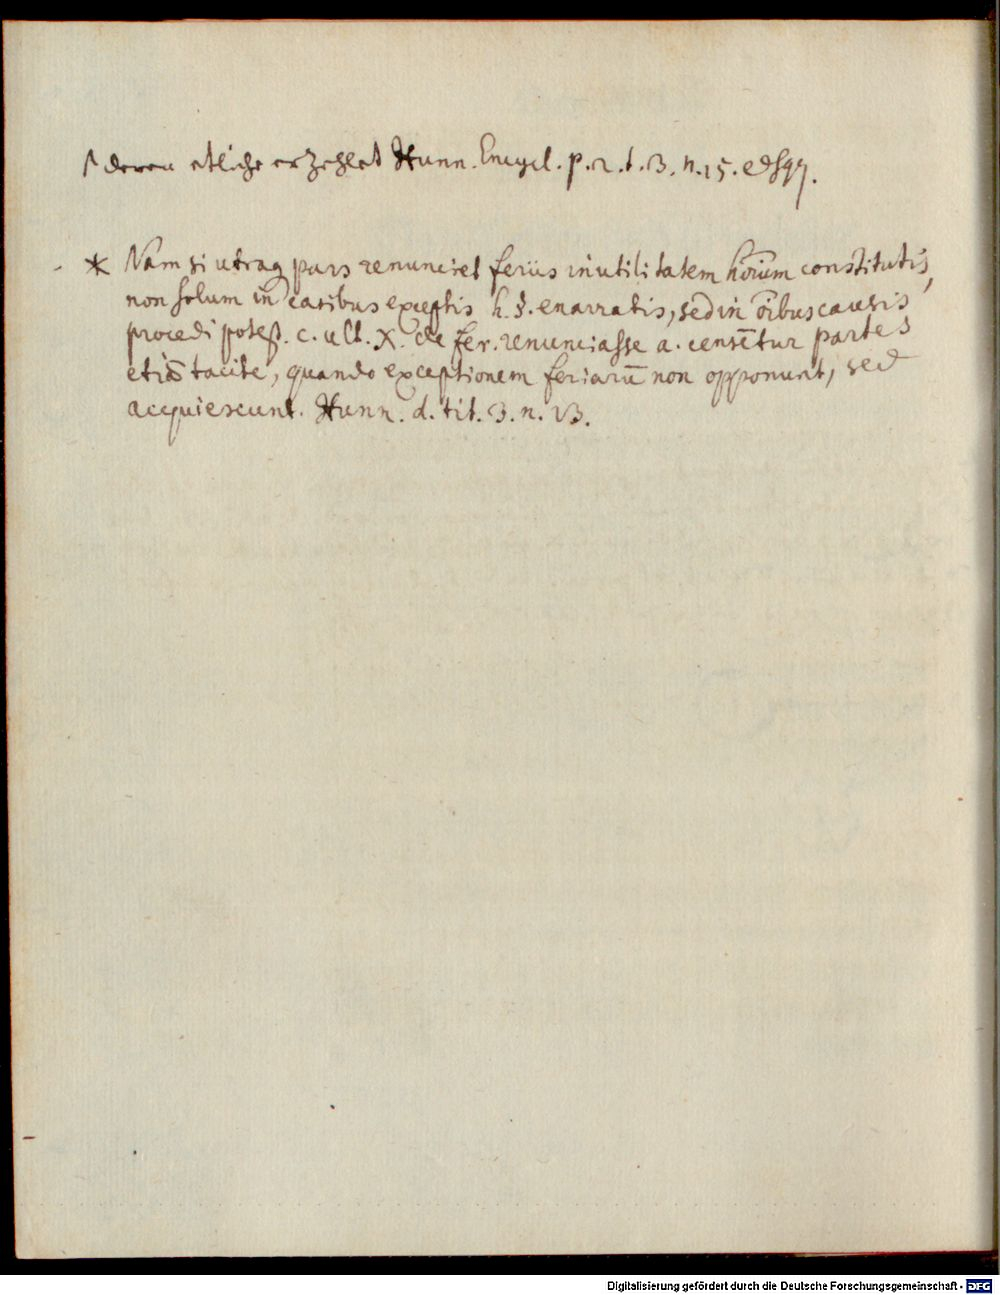 ↑ deren etliche erzehlet Hunn. Encycl. p. 2. t. 3. n. 15. et sqq.
* Nam si utraq pars renunciet feriis in utilitatem hōium constitutis,
non solum in casibus exceptis h. §. enarratis, sed in oībus causis
procedi potest. c. ult. X. de fer. renunciasse a. censētur partes
etiā tacite, quando exceptionem feriarū non opponunt, sed
acquiescunt. Hunn. d. tit. 3. n. 13.
Digitalisierung gefördert durch die Deutsche Forschungsgemeinschaft - DFG